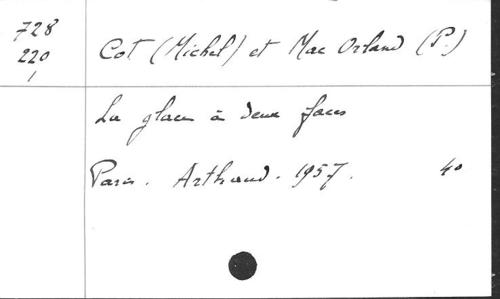 728
220
1
Cot (Michel) et Mac Orland (P.)
La glace à deux faces
Paris. Arthaud. 1957. 40